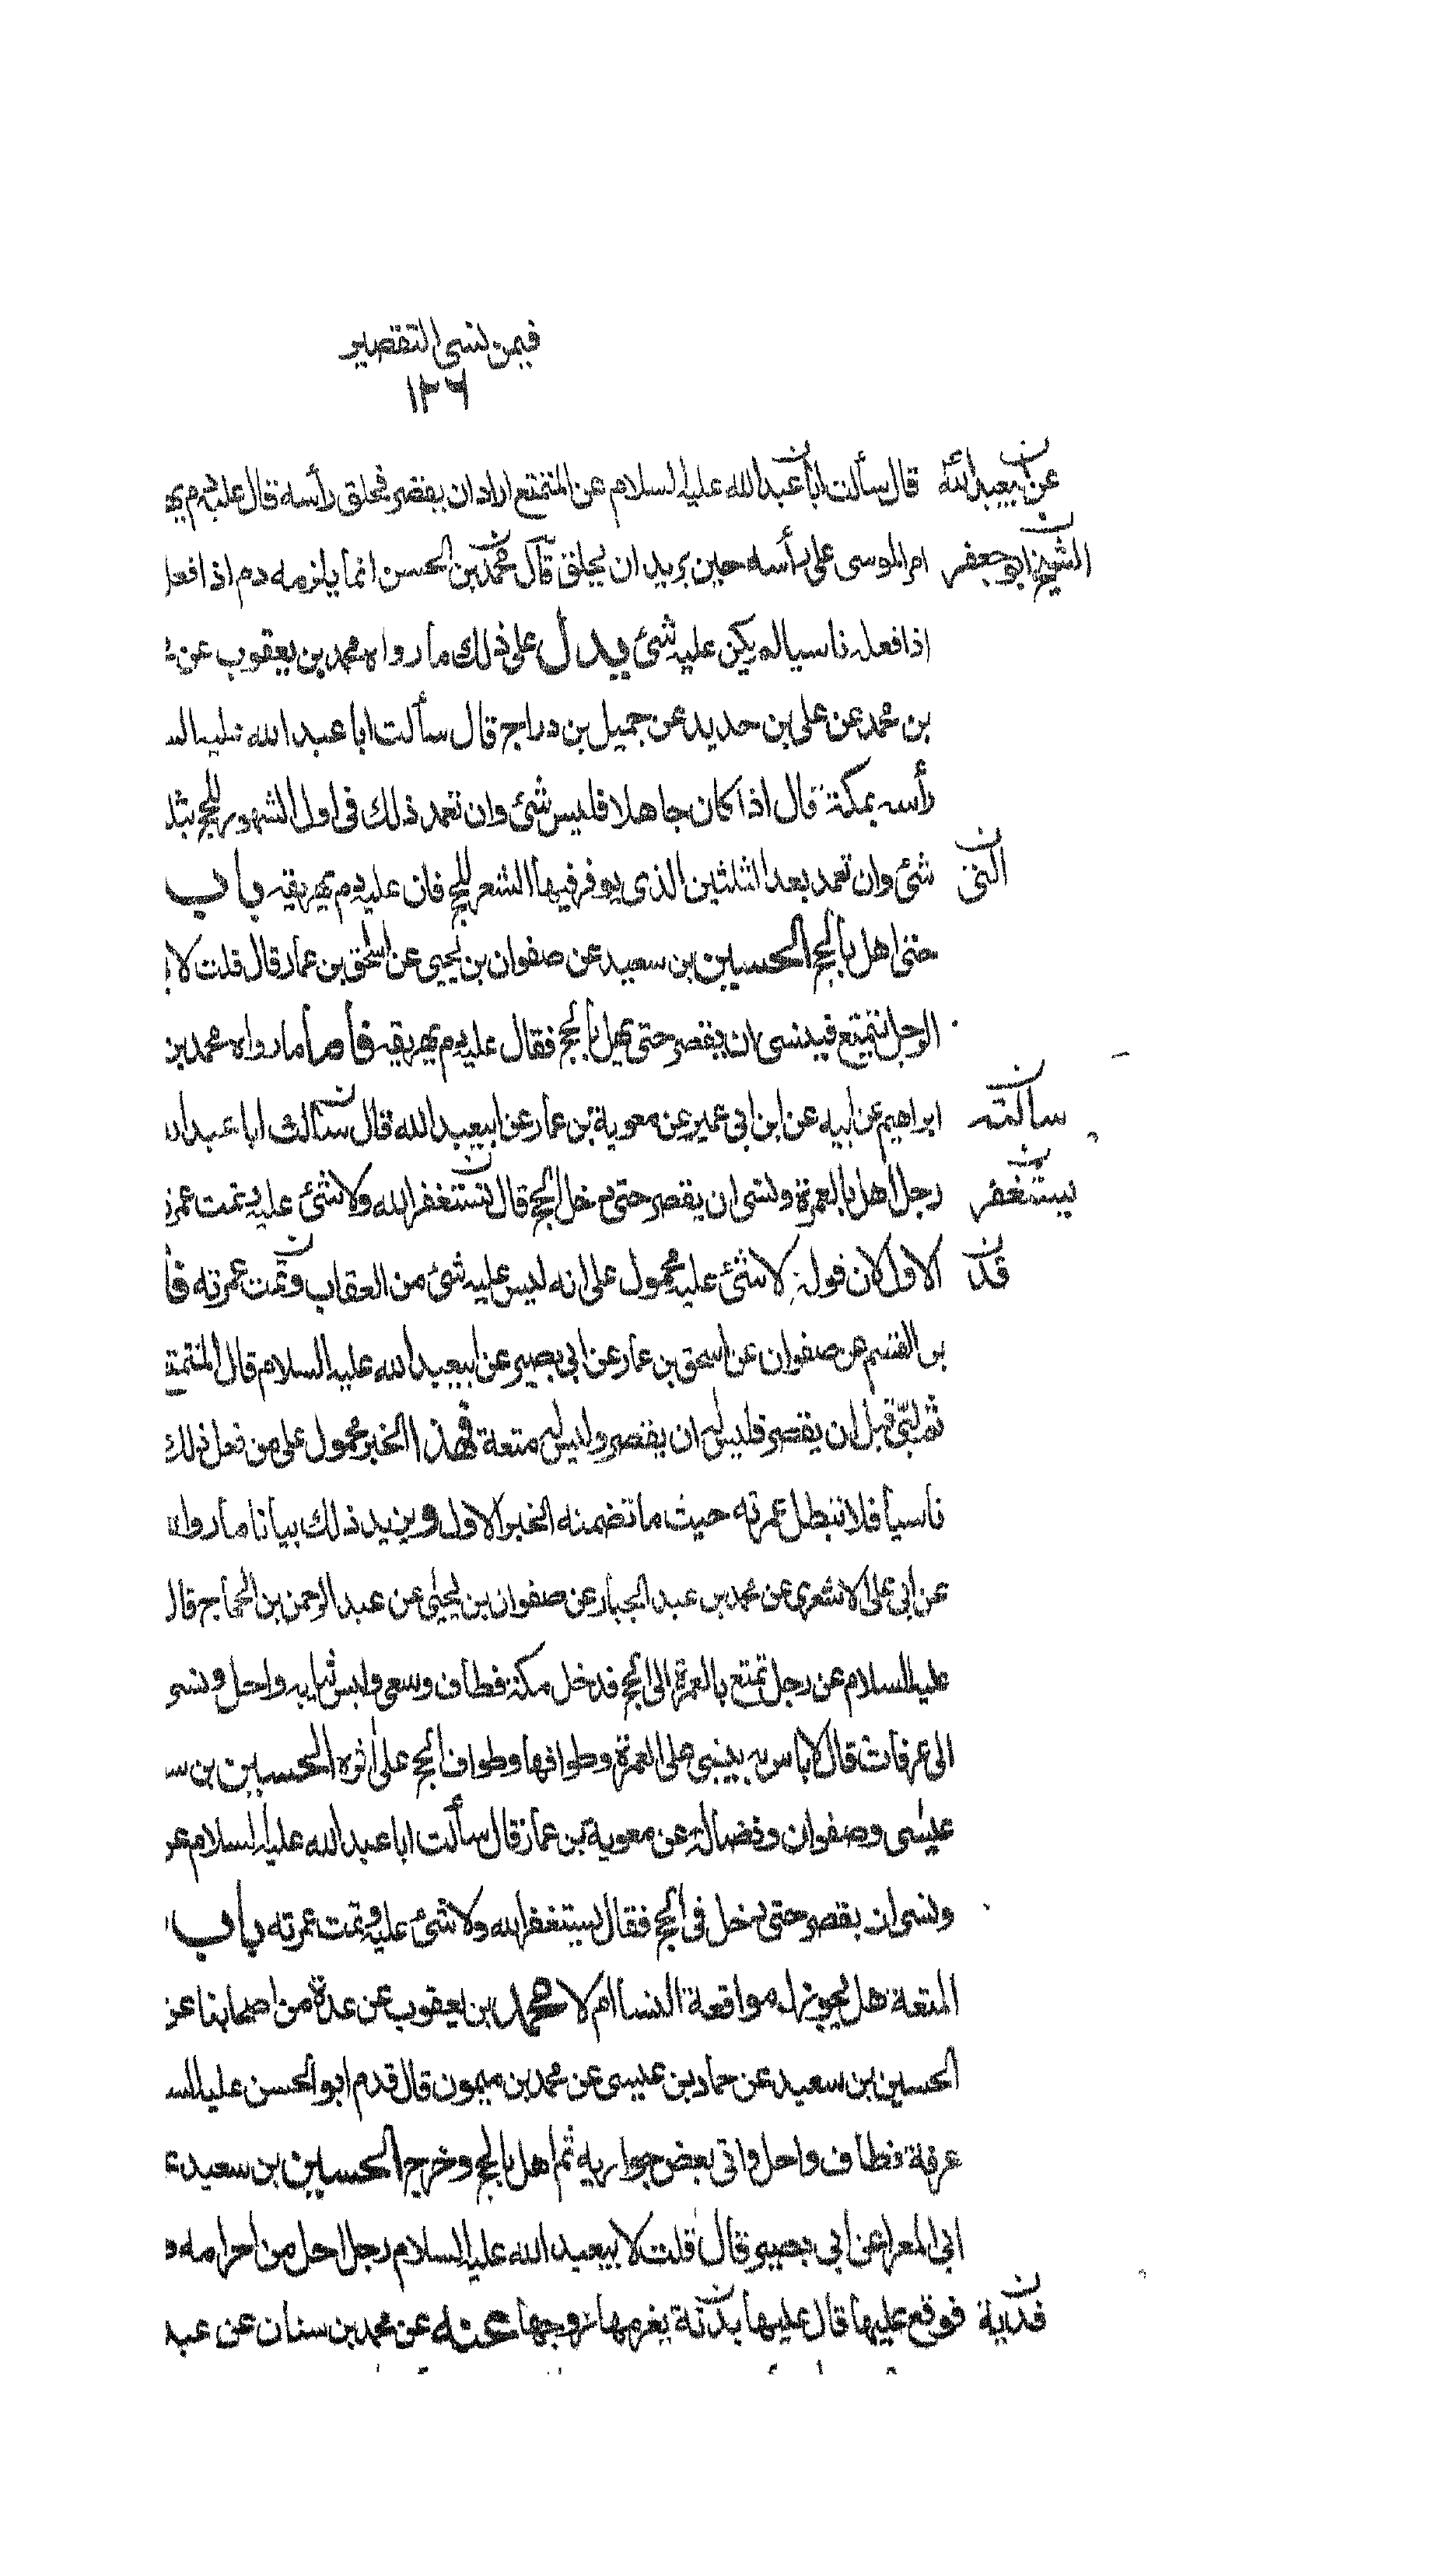 فيمن نسى التقصير
١٢٦
عن ابيعبد الله قال سألت ابا عبد الله عليه السلام عن المتمتع اراد ان يقصر فحلق رأسه قال عليه دم
الشيخ ابو جعفر امر الموسى على رأسه حين يريد ان يحلق قال محمد بن الحسن انما يلزمه دم اذا فعل
اذا فعله ناسيا لم يكن عليه شئ يدل على ذلك ما رواه محمد بن يعقوب عن
بن محمد عن على بن حديد عن جميل بن دراج قال سألت ابا عبد الله عليه
رأسه بمكة قال اذا كان جاهلا فليس شئ وان تعمد ذلك فى اول الشهور للحج
التى شئ وان تعمد بعد الثلثين الذى يوفر فيها الشعر للحج فان عليه دم يهريقه باب
حتى اهل بالحج الحسين بن سعيد عن صفوان بن يحيى عن اسحق بن عمار قال قلت
الرجل يتمتع فينسى ان يقصر حتى يهل بالحج فقال عليه دم يهريقه فأما ما رواه محمد بن
سألته ابراهيم عن ابيه عن ابن ابى عمير عن معوية بن عمار عن ابيعبد الله قال سألت ابا عبد
يستغفر رجل اهل بالعمرة ونسى ان يقصر حتى دخل الحج قال يستغفر الله ولا شئ عليه وتمت
قد الاول لان قوله لا شئ عليه محمول على انه ليس عليه شئ من العقاب وتمت عمرته
بن القسم عن صفوان عن اسحق بن عمار عن ابى بصير عن ابيعبد الله عليه السلام قال المتمتع
ثم لبى قبل ان يقصر فليس له ان يقصر وليس له متعة فهذا الخبر محمول على من فعل ذلك
ناسيا فلا تبطل عمرته حيث ما تضمنه الخبر الاول ويزيد ذلك بيانا ما رواه
عن ابى على الاشعرى عن محمد بن عبد الجبار عن صفوان بن يحيى عن عبد الرحمن بن الحجاج قال
عليه السلام عن رجل تمتع بالعمرة الى الحج فدخل مكة فطاف وسعى ولبس ثيابه واحل ونسى
الى عرفات قال لا باس به يبنى على العمرة وطوافها وطواف الحج على اثره الحسين بن
عيسى وصفوان وفضالة عن معوية بن عمار قال سألت ابا عبد الله عليه السلام عن
ونسى ان يقصر حتى دخل فى الحج فقال يستغفر الله ولا شئ عليه وتمت عمرته باب
المتعة هل يجوز له مواقعة النسا ام لا محمد بن يعقوب عن عدة من اصحابنا عن
الحسين بن سعيد عن حماد بن عيسى عن محمد بن ميمون قال قدم ابو الحسن عليه
عرفة فطاف واحل واتى بعض جواريه ثم اهل بالحج وخرج الحسين بن سعيد
ابى المعرا عن ابى بصير قال قلت لابيعبد الله عليه السلام رجل احل من احرامه
فدية فوقع عليها قال عليها بدنة يغرمها زوجها عنه عن محمد بن سنان عن عبد